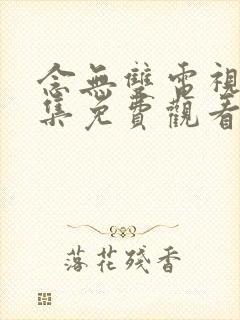 念無雙電視
集免費觀看
落花殘香